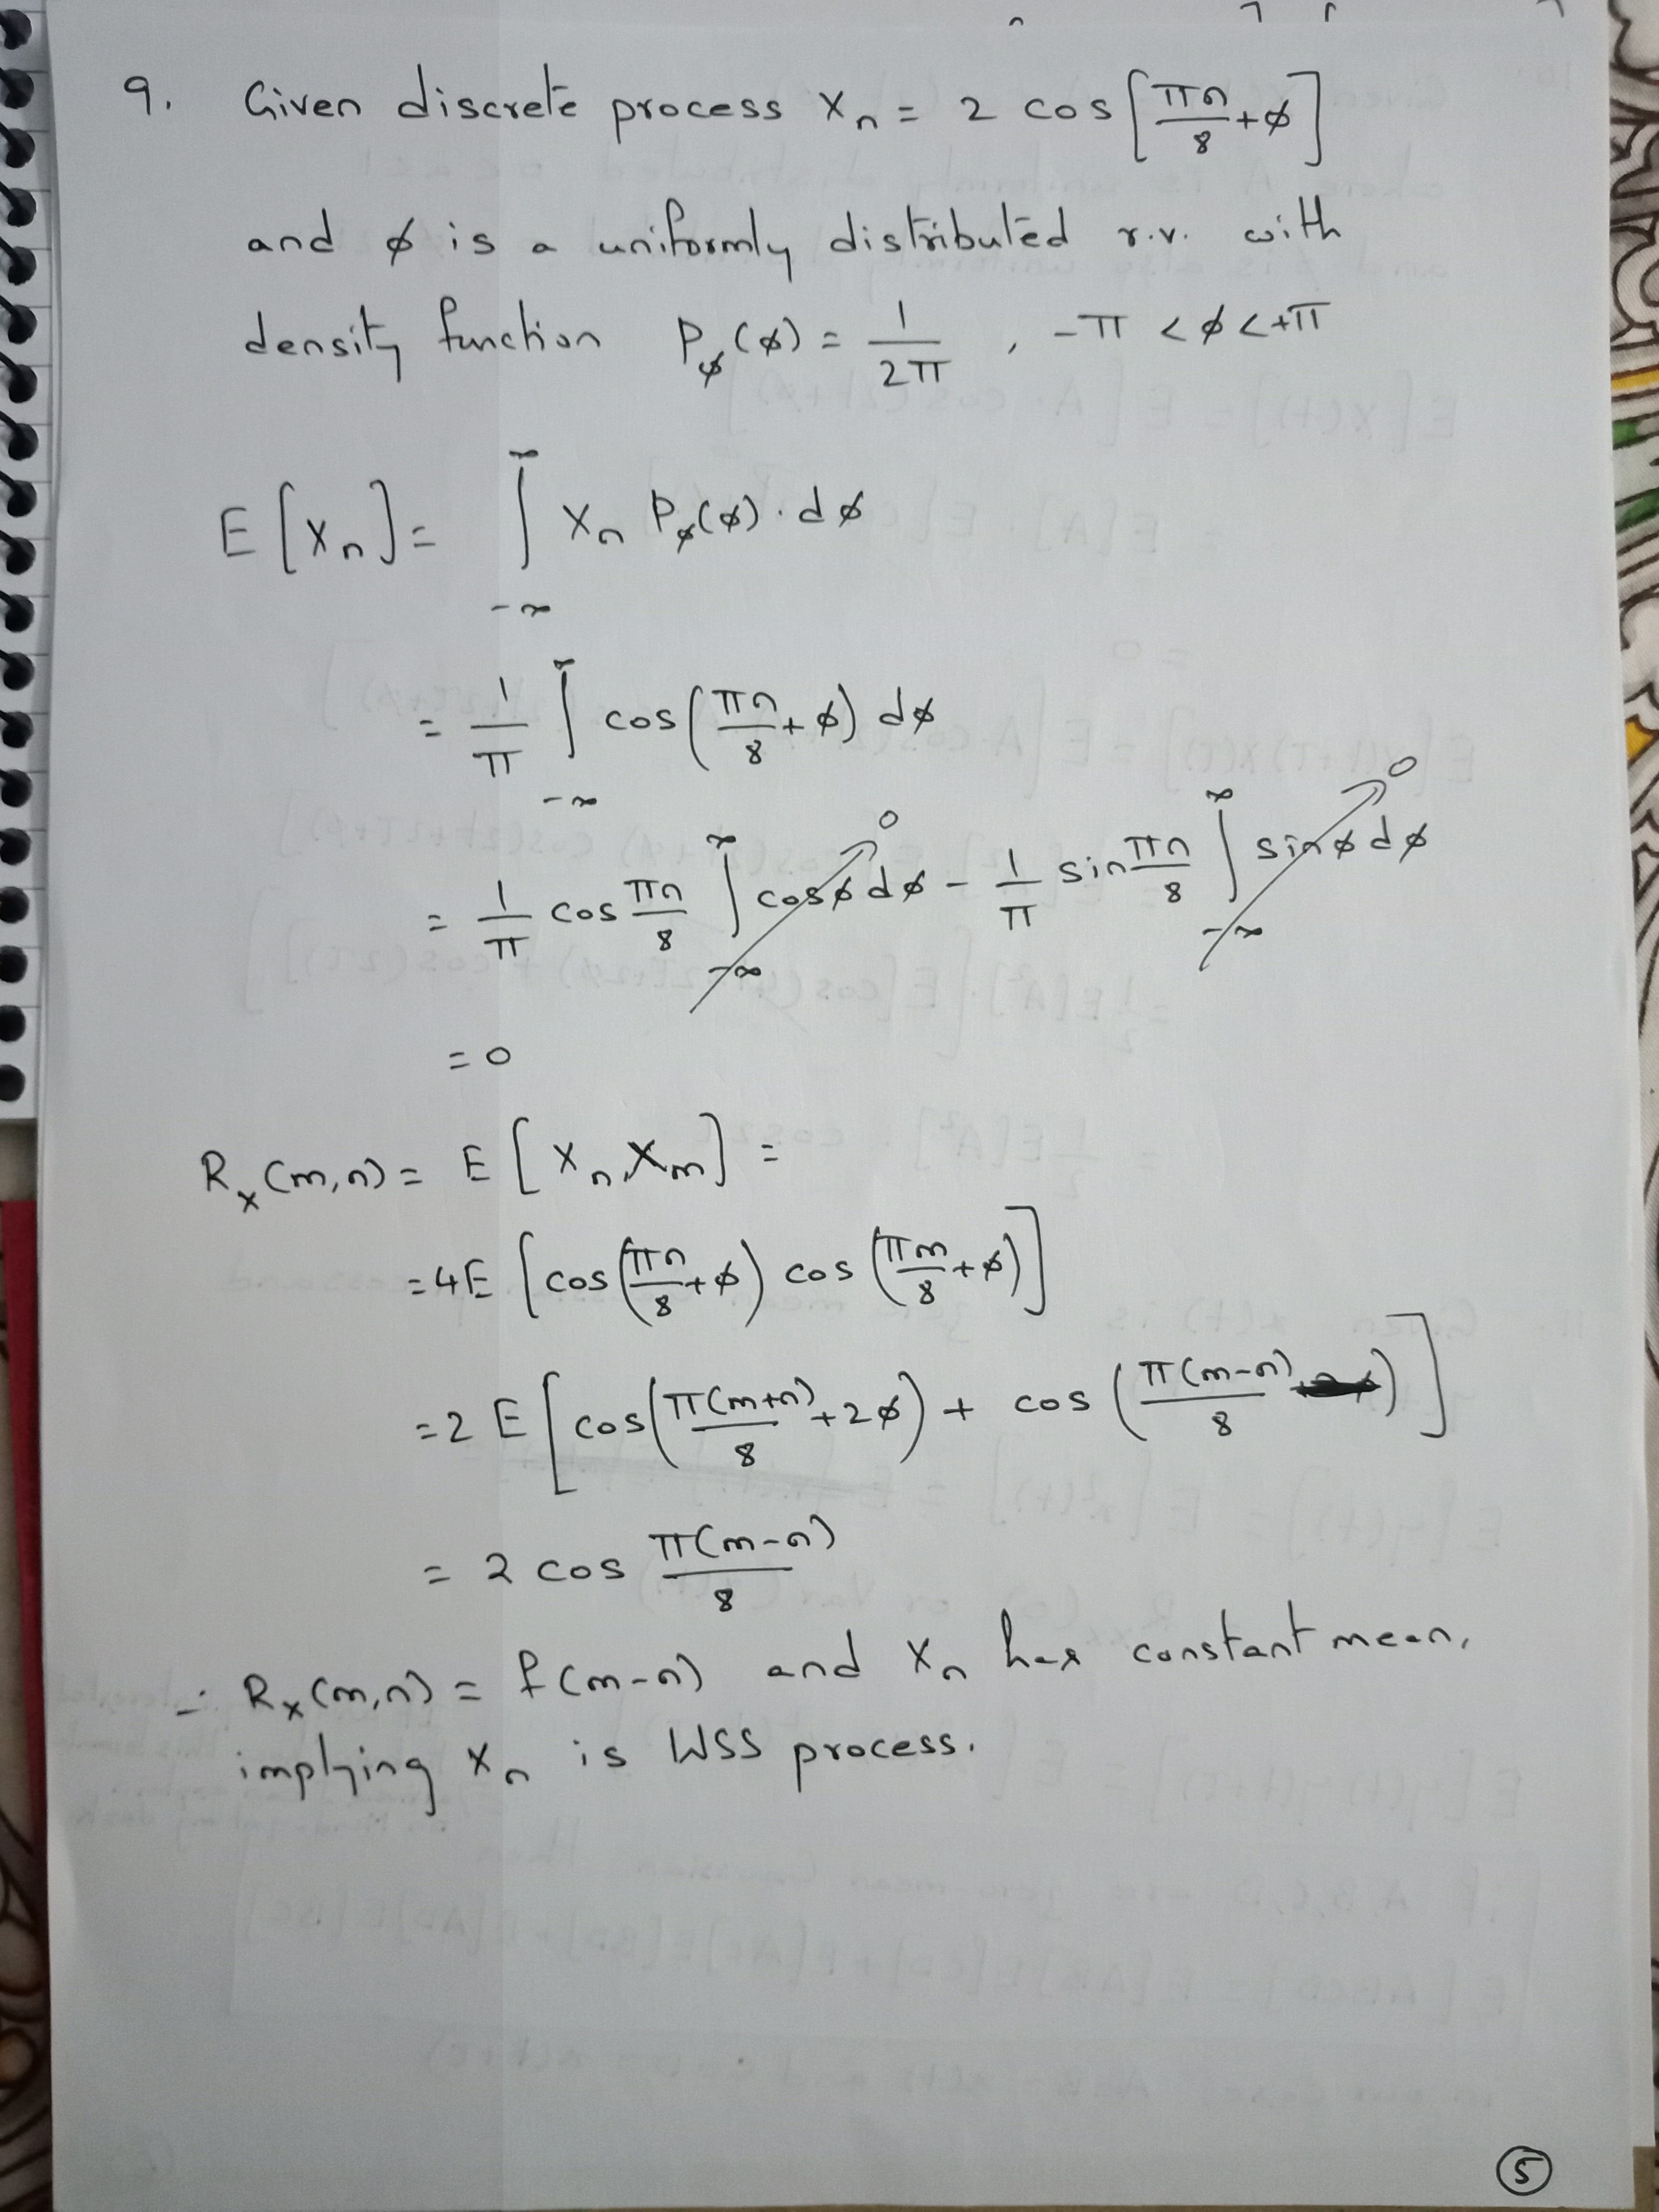 9. Given discrete process Xn = 2 cos[πn/8 + φ]
and φ is a uniformly distributed r.v. with
density function Pφ(φ) = 1/2π , -π < φ < +π
E[Xn] = ∫_{-∞}^{∞} Xn Pφ(φ) . dφ
= 1/π ∫_{-∞}^{∞} cos(πn/8 + φ) dφ
= 1/π cos πn/8 ∫_{-∞}^{∞} cosφ dφ → 0 - 1/π sin πn/8 ∫_{-∞}^{∞} sinφ dφ → 0
= 0
Rx(m,n) = E[Xn.Xm] =
= 4E[cos(πn/8 + φ) cos(πm/8 + φ)]
= 2E[cos(π(m+n)/8 + 2φ) + cos(π(m-n)/8)]
= 2 cos π(m-n)/8
∴ Rx(m,n) = f(m-n) and Xn has constant mean,
implying Xn is WSS process.
5